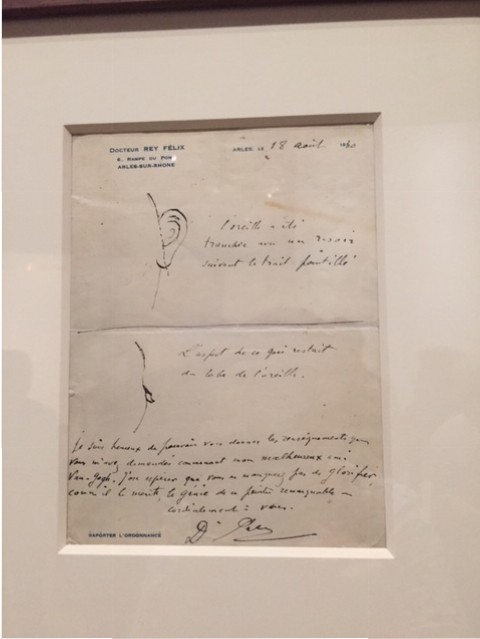 DOCTEUR REY FÉLIX
6, RAMPE DU PONT
ARLES-SUR-RHONE
ARLES, LE 18 août 1930
l'oreille a été
tranchée avec un rasoir
suivant le trait pointillé
L'aspect de ce qui restait
du lobe de l'oreille.
Je suis heureux de pouvoir vous donner les renseignements que
vous m'avez demandés concernant mon malheureux ami
Van-Gogh. J'ose espérer que vous ne manquerez pas de glorifier
comme il le mérite, le génie de ce peintre remarquable
cordialement à vous.
Dr Rey
RAPPORTER L'ORDONNANCE